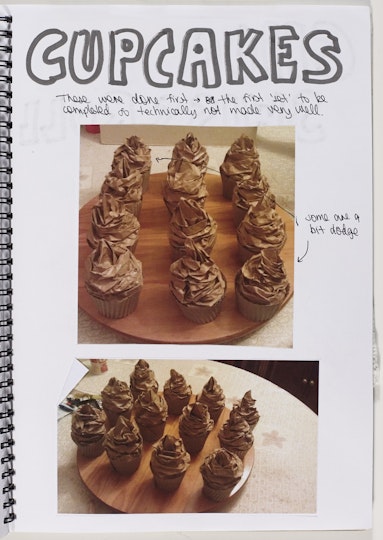 CUPCAKES
These were done first → the first 'set' to be
completed & technically not made very well.
some are a
bit dodge